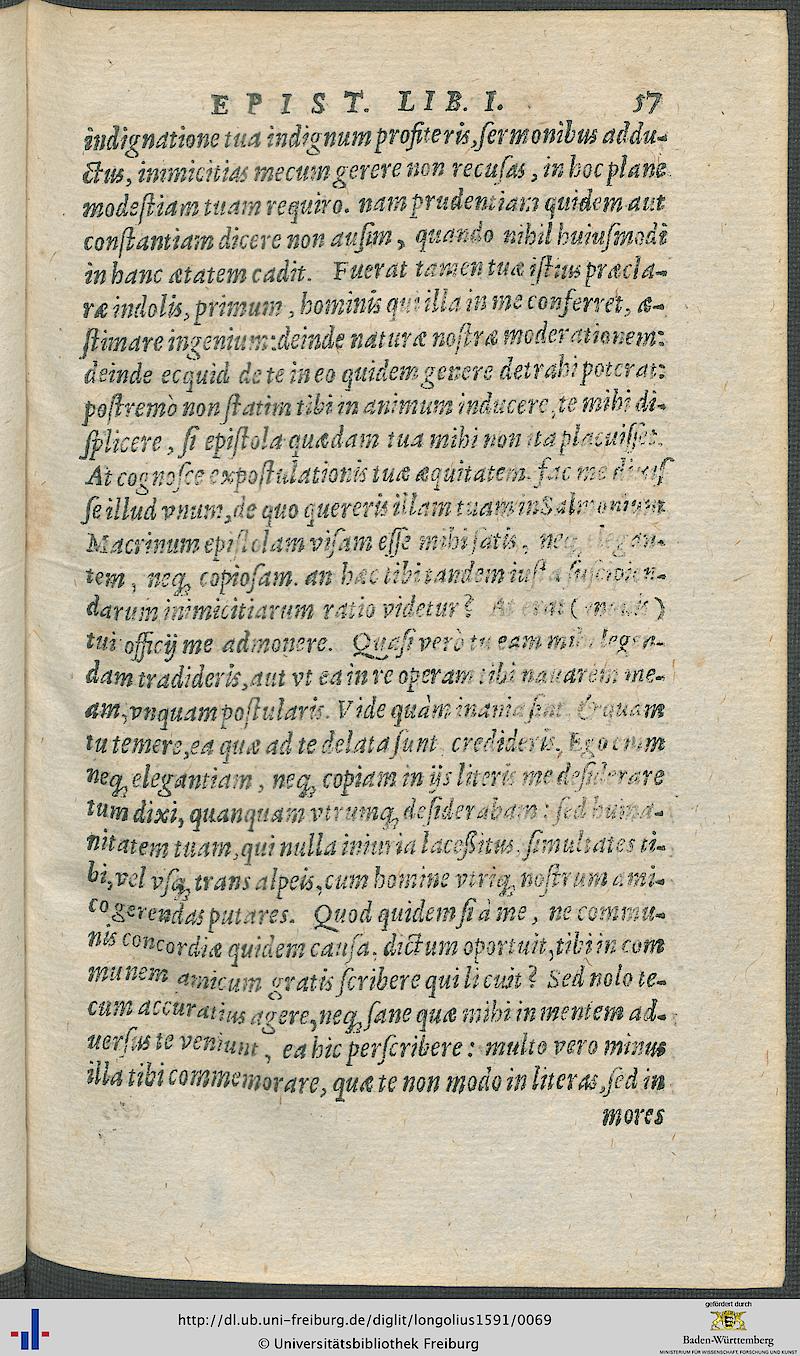 EPIST. LIB. I. 57
indignatione tua indignum profiteris, sermonibus addu-
ctus, inimicitias mecum gerere non recusas, in hoc plane
modestiam tuam requiro. nam prudentiam quidem aut
constantiam dicere non ausim, quando nihil huiusmodi
in hanc ætatem cadit. Fuerat tamen tuæ istius præcla-
ræ indolis, primum, hominis qui illa in me conferret, æ-
stimare ingenium: deinde naturæ nostræ moderationem:
deinde ecquid de te in eo quidem genere detrahi poterat:
postremò non statim tibi in animum inducere, te mihi di-
splicere, si epistola quædam tua mihi non ita placuisset.
At cognosce expostulationis tuæ æquitatem. fac me dixis
se illud vnum, de quo quereris illam tuam in Salmonium
Macrinum epistolam visam esse mihi satis, neq; elegan-
tem, neq; copiosam. an hæc tibi tandem iusta suscipien-
darum inimicitiarum ratio videtur? At erat (inquis)
tui officij me admonere. Quasi verò tu eam mihi legen-
dam tradideris, aut vt ea in re operam tibi nauarem me-
am, vnquam postularis. Vide quàm inania sint, & quam
tu temere, ea quæ ad te delata sunt credideris. Ego enim
neq; elegantiam, neq; copiam in ijs literis me desiderare
tum dixi, quanquam vtrumq; desiderabam: sed huma-
nitatem tuam, qui nulla iniuria lacessitus, simultates ti-
bi, vel vsq; trans alpeis, cum homine vtriq; nostrum ami-
co gerendas putares. Quod quidem si à me, ne commu-
nis concordiæ quidem causa, dictum oportuit, tibi in com
munem amicum gratis scribere qui licuit? Sed nolo te-
cum accuratius agere, neq; sane quæ mihi in mentem ad-
uersus te veniunt, ea hic perscribere: multo vero minus
illa tibi commemorare, quæ te non modo in literas, sed in
mores
http://dl.ub.uni-freiburg.de/diglit/longolius1591/0069
© Universitätsbibliothek Freiburg
gefördert durch
Baden-Württemberg
MINISTERIUM FÜR WISSENSCHAFT, FORSCHUNG UND KUNST